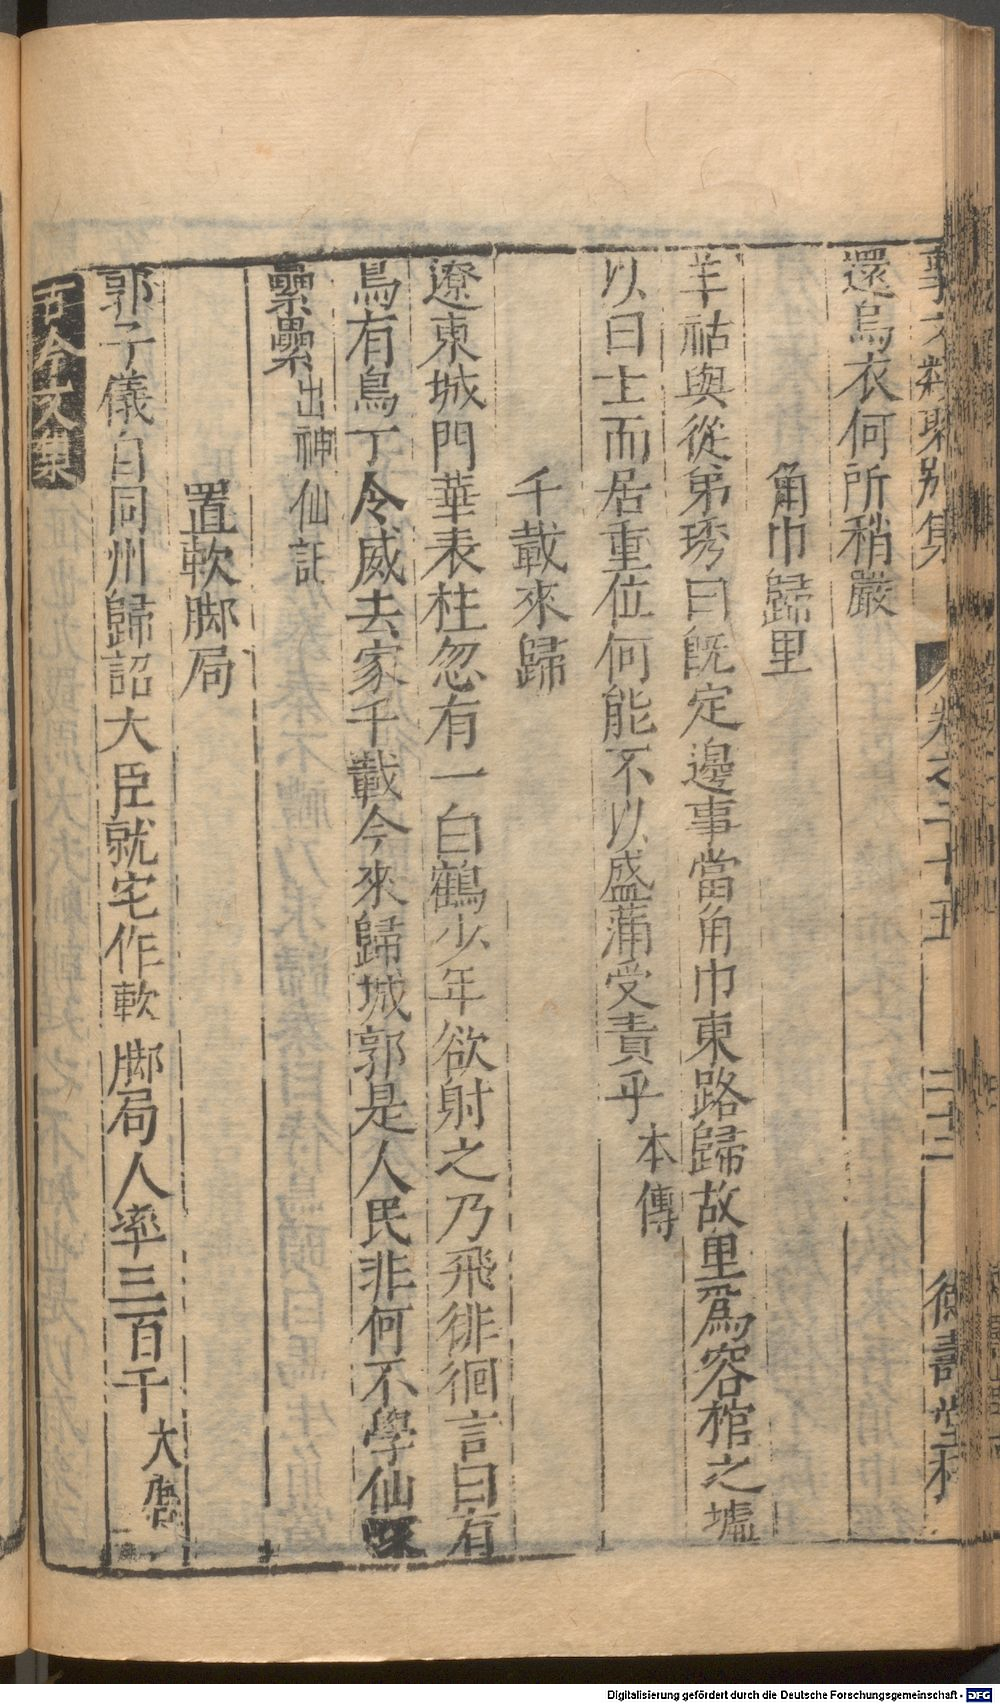 事文類聚別集 卷之二十五 二十二 德壽堂梓
還烏衣何所稍嚴
角巾歸里
羊祜與從弟琇曰旣定邊事當角巾東路歸故里爲容棺之墟
以曰士而居重位何能不以盛滿受責乎本傳
千載來歸
遼東城門華表柱忽有一白鶴少年欲射之乃飛徘徊言曰有
鳥有鳥丁令威去家千載今來歸城郭是人民非何不學仙冢
纍纍出神仙記
置軟脚局
郭子儀自同州歸詔大臣就宅作軟脚局人率三百千大唐
古今文集
Digitalisierung gefördert durch die Deutsche Forschungsgemeinschaft - DFG